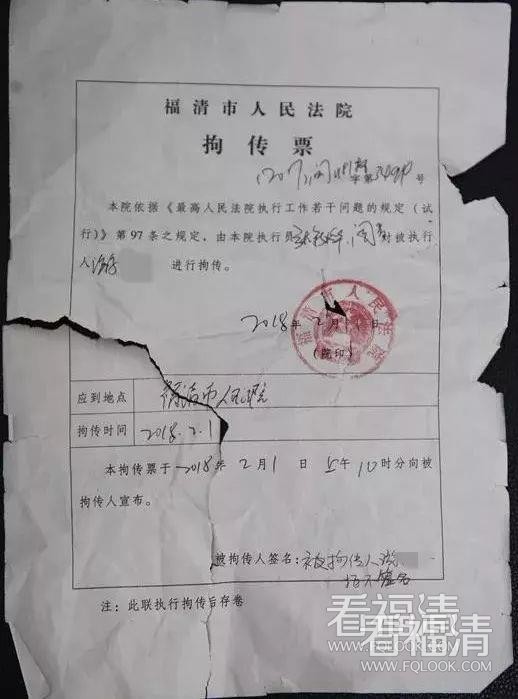 福清市人民法院
拘传票
字第 号
本院依据《最高人民法院执行工作若干问题的规定（试
行）》第97条之规定，由本院执行员 对被执行
人 进行拘传。
2018年2月1日
（院印）
福清市人民法院
应到地点 福清市人民法院
拘传时间 2018.2.1
本拘传票于2018年2月1日上午10时分向被
拘传人宣布。
被拘传人签名：被拘传人
拒不签名
注：此联执行拘传后存卷
看福清
WWW.FQLOOK.COM
看福清
WWW.FQLOOK.COM